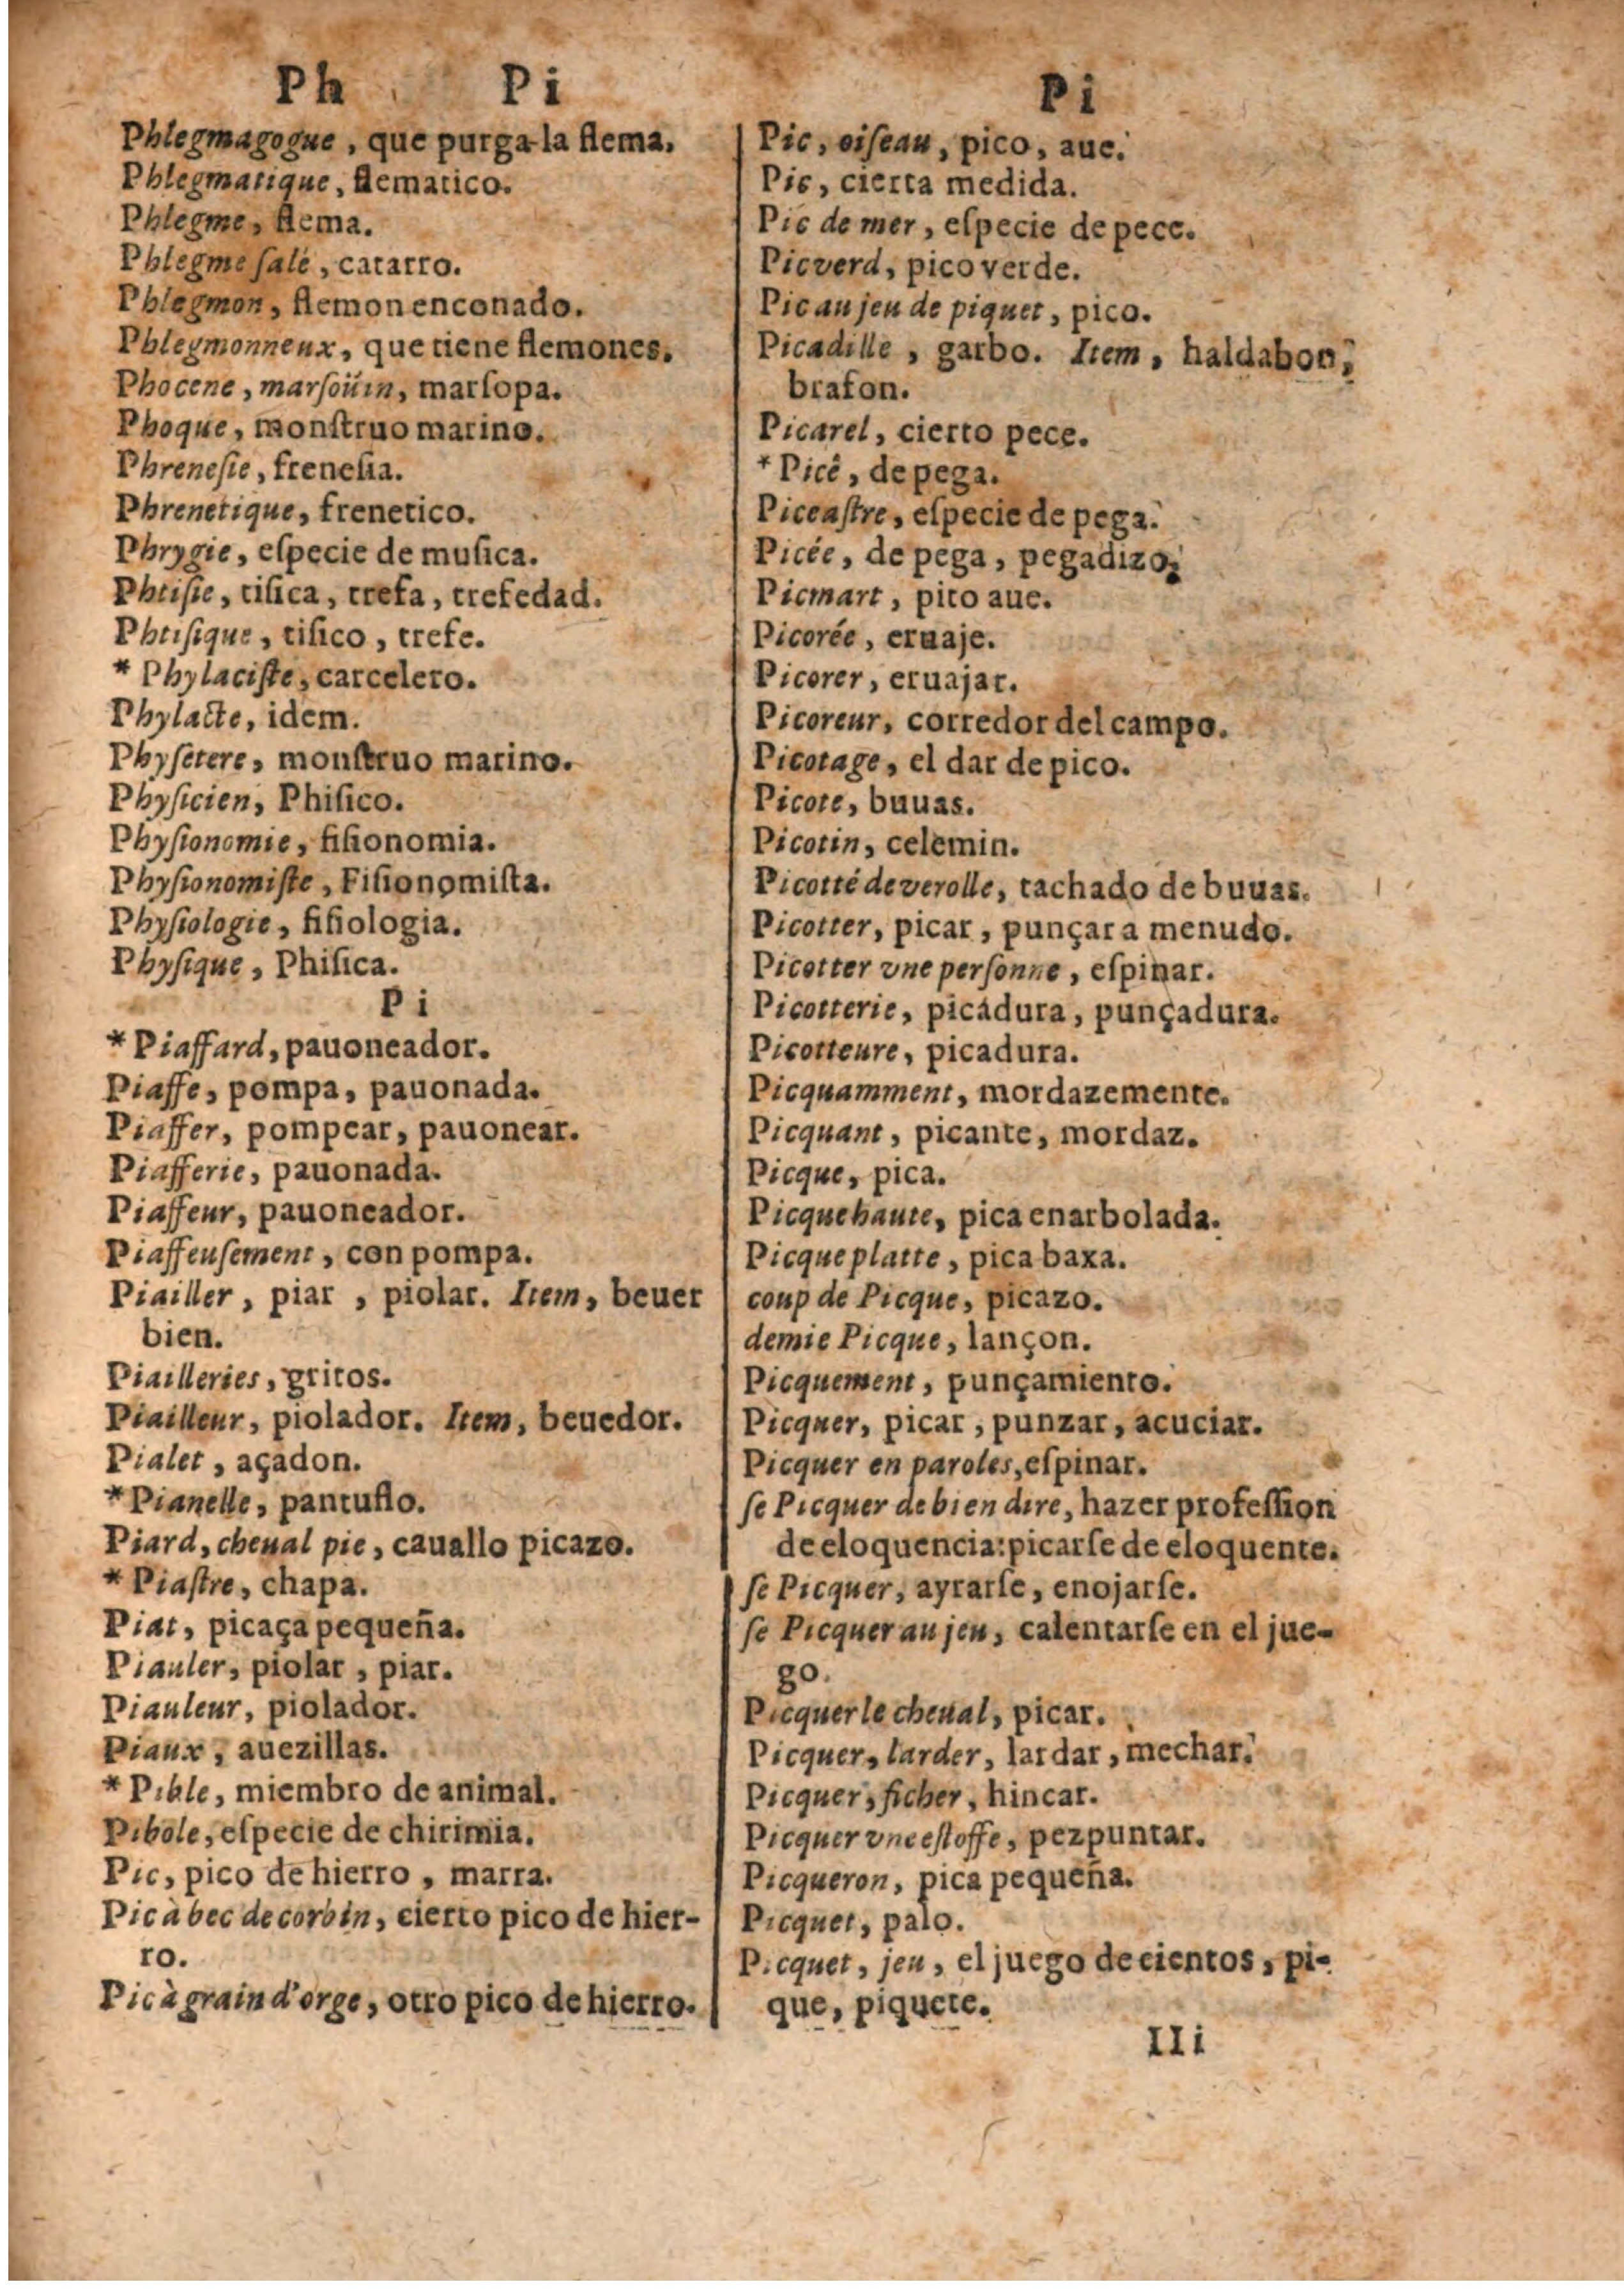 Ph Pi
Phlegmagogue, que purga la flema.
Phlegmatique, flematico.
Phlegme, flema.
Phlegme ſalé, catarro.
Phlegmon, flemon enconado.
Phlegmonneux, que tiene flemones.
Phocene, marſoüin, marſopa.
Phoque, monſtruo marino.
Phreneſie, freneſia.
Phrenetique, frenetico.
Phrygie, eſpecie de muſica.
Phtiſie, tiſica, trefa, trefedad.
Phtiſique, tiſico, trefe.
* Phylaciſte, carcelero.
Phylacte, idem.
Phyſetere, monſtruo marino.
Phyſicien, Phiſico.
Phyſionomie, fiſionomia.
Phyſionomiſte, Fiſionomiſta.
Phyſiologie, fiſiologia.
Phyſique, Phiſica.
Pi
* Piaffard, pauoneador.
Piaffe, pompa, pauonada.
Piaffer, pompear, pauonear.
Piafferie, pauonada.
Piaffeur, pauoneador.
Piaffeuſement, con pompa.
Piailler, piar, piolar. Item, beuer
bien.
Piailleries, gritos.
Piailleur, piolador. Item, beuedor.
Pialet, açadon.
* Pianelle, pantuflo.
Piard, cheual pie, cauallo picazo.
* Piaſtre, chapa.
Piat, picaça pequeña.
Piauler, piolar, piar.
Piauleur, piolador.
Piaux, auezillas.
* Pible, miembro de animal.
Pibole, eſpecie de chirimia.
Pic, pico de hierro, marra.
Pic à bec de corbin, cierto pico de hier-
ro.
Pic à grain d'orge, otro pico de hierro.
Pi
Pic, oiſeau, pico, aue.
Pic, cierta medida.
Pic de mer, eſpecie de pece.
Picverd, pico verde.
Pic au jeu de piquet, pico.
Picadille, garbo. Item, haldabon,
brafon.
Picarel, cierto pece.
* Picê, de pega.
Piceaſtre, eſpecie de pega.
Picée, de pega, pegadizo.
Picmart, pito aue.
Picorée, eruaje.
Picorer, eruajar.
Picoreur, corredor del campo.
Picotage, el dar de pico.
Picote, buuas.
Picotin, celemin.
Picotté de verolle, tachado de buuas.
Picotter, picar, punçar a menudo.
Picotter vne perſonne, eſpinar.
Picotterie, picadura, punçadura.
Picotteure, picadura.
Picquamment, mordazemente.
Picquant, picante, mordaz.
Picque, pica.
Picque haute, pica enarbolada.
Picque platte, pica baxa.
coup de Picque, picazo.
demie Picque, lançon.
Picquement, punçamiento.
Picquer, picar, punzar, acuciar.
Picquer en paroles, eſpinar.
ſe Picquer de bien dire, hazer profeſſion
de eloquencia: picarſe de eloquente.
ſe Picquer, ayrarſe, enojarſe.
ſe Picquer au jeu, calentarſe en el jue-
go.
Picquer le cheual, picar.
Picquer, larder, lardar, mechar.
Picquer, ficher, hincar.
Picquer vne eſtoffe, pezpuntar.
Picqueron, pica pequeña.
Picquet, palo.
Picquet, jeu, el juego de cientos, pi-
que, piquete.
IIi